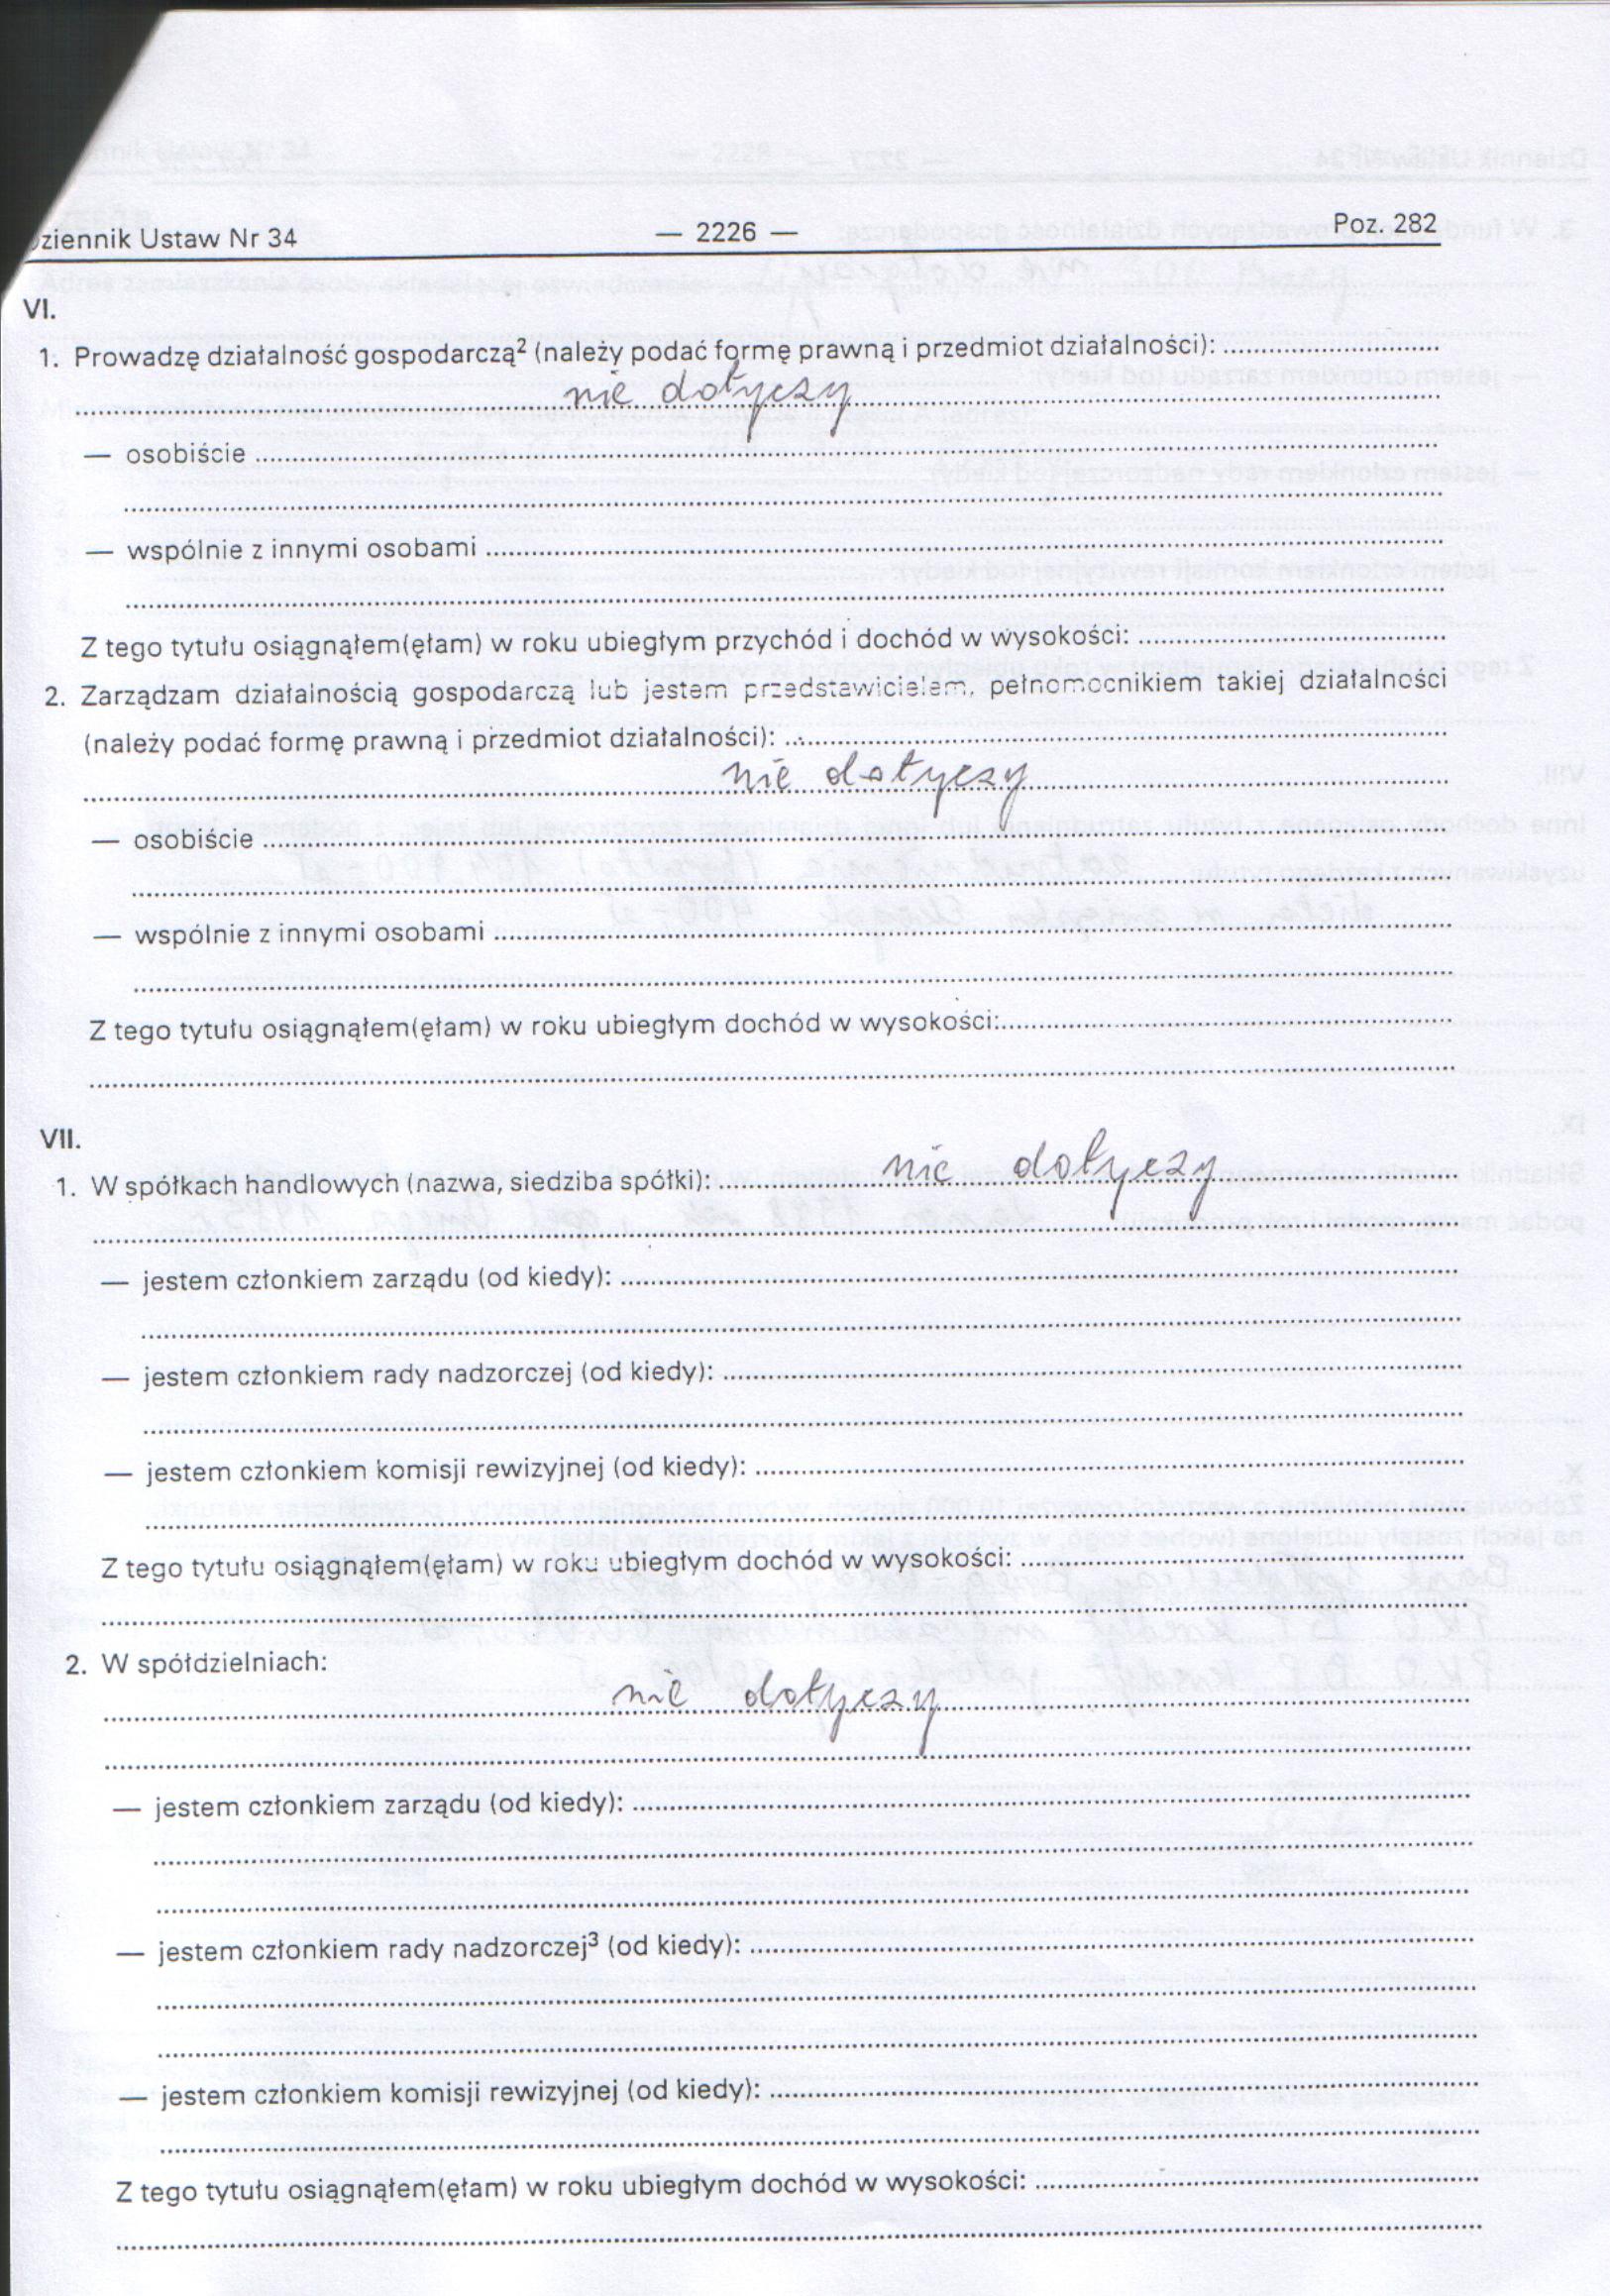 Dziennik Ustaw Nr 34 — 2226 — Poz. 282
VI.
1. Prowadzę działalność gospodarczą² (należy podać formę prawną i przedmiot działalności):
nie dotyczy
— osobiście
— wspólnie z innymi osobami
Z tego tytułu osiągnąłem(ęłam) w roku ubiegłym przychód i dochód w wysokości:
2. Zarządzam działalnością gospodarczą lub jestem przedstawicielem, pełnomocnikiem takiej działalności
(należy podać formę prawną i przedmiot działalności):
nie dotyczy
— osobiście
— wspólnie z innymi osobami
Z tego tytułu osiągnąłem(ęłam) w roku ubiegłym dochód w wysokości:
VII.
1. W spółkach handlowych (nazwa, siedziba spółki): nie dotyczy
— jestem członkiem zarządu (od kiedy):
— jestem członkiem rady nadzorczej (od kiedy):
— jestem członkiem komisji rewizyjnej (od kiedy):
Z tego tytułu osiągnąłem(ęłam) w roku ubiegłym dochód w wysokości:
2. W spółdzielniach:
nie dotyczy
— jestem członkiem zarządu (od kiedy):
— jestem członkiem rady nadzorczej³ (od kiedy):
— jestem członkiem komisji rewizyjnej (od kiedy):
Z tego tytułu osiągnąłem(ęłam) w roku ubiegłym dochód w wysokości: